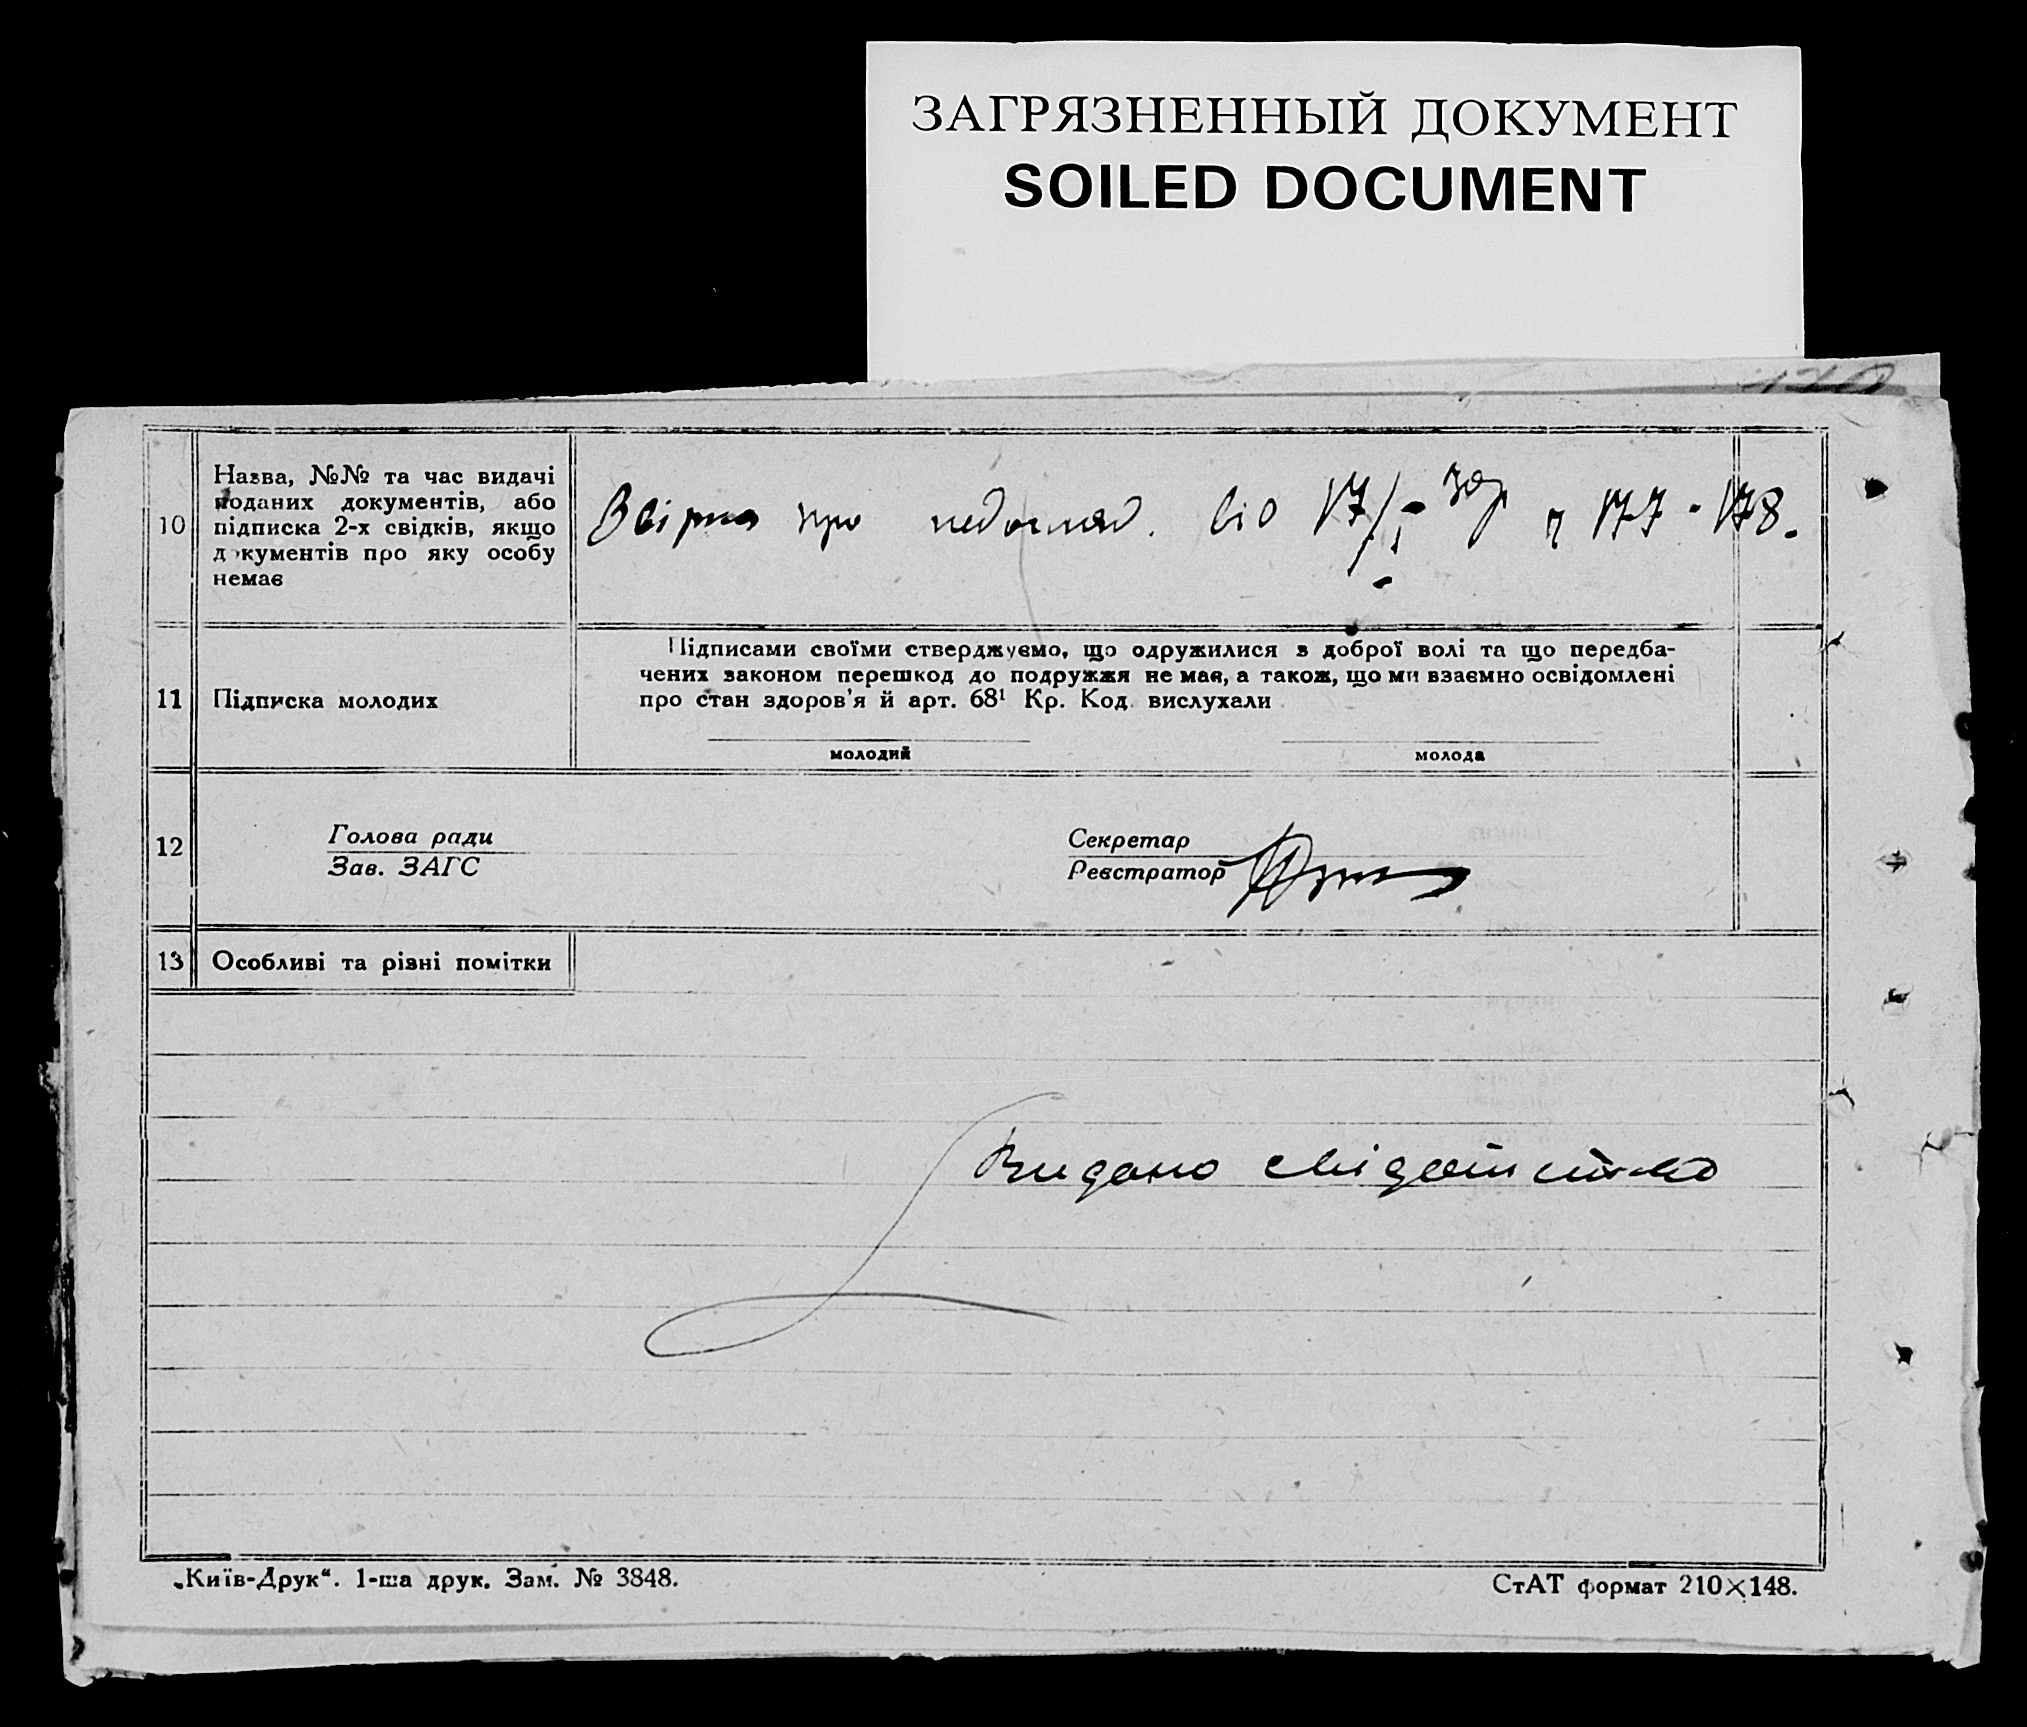 ЗАГРЯЗНЕННЫЙ ДОКУМЕНТ
SOILED DOCUMENT
10
Назва, №№ та час видачі
поданих документів, або
підписка 2-х свідків, якщо
документів про яку особу
немає
про від 17/I 177-178.
11
Підписка молодих
Підписами своїми стверджуємо, що одружилися з доброї волі та що передба-
чених законом перешкод до подружжя не має, а також, що ми взаємно освідомлені
про стан здоров'я й арт. 68¹ Кр. Код. вислухали
молодий
молода
12
Голова ради
Зав. ЗАГС
Секретар
Реєстратор
13
Особливі та різні помітки
Видано свідотство
„Київ-Друк“. 1-ша друк. Зам. № 3848.
СтАТ формат 210×148.